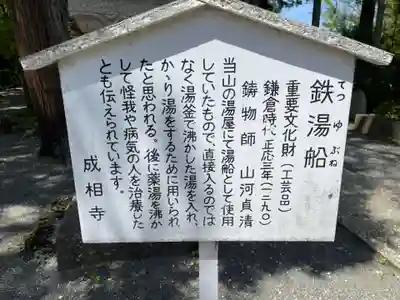 鉄湯船
てつ ゆ ぶね
重要文化財(工芸品)
鎌倉時代 正応三年(一二九〇)
鋳物師 山河貞清
当山の湯屋にて湯船として使用
していたもので、直接入るのでは
なく湯釜で沸かした湯を入れ、
かゝり湯をするために用いられ
たと思われる。後に薬湯を沸か
して怪我や病気の人を治療した
とも伝えられています。
成相寺